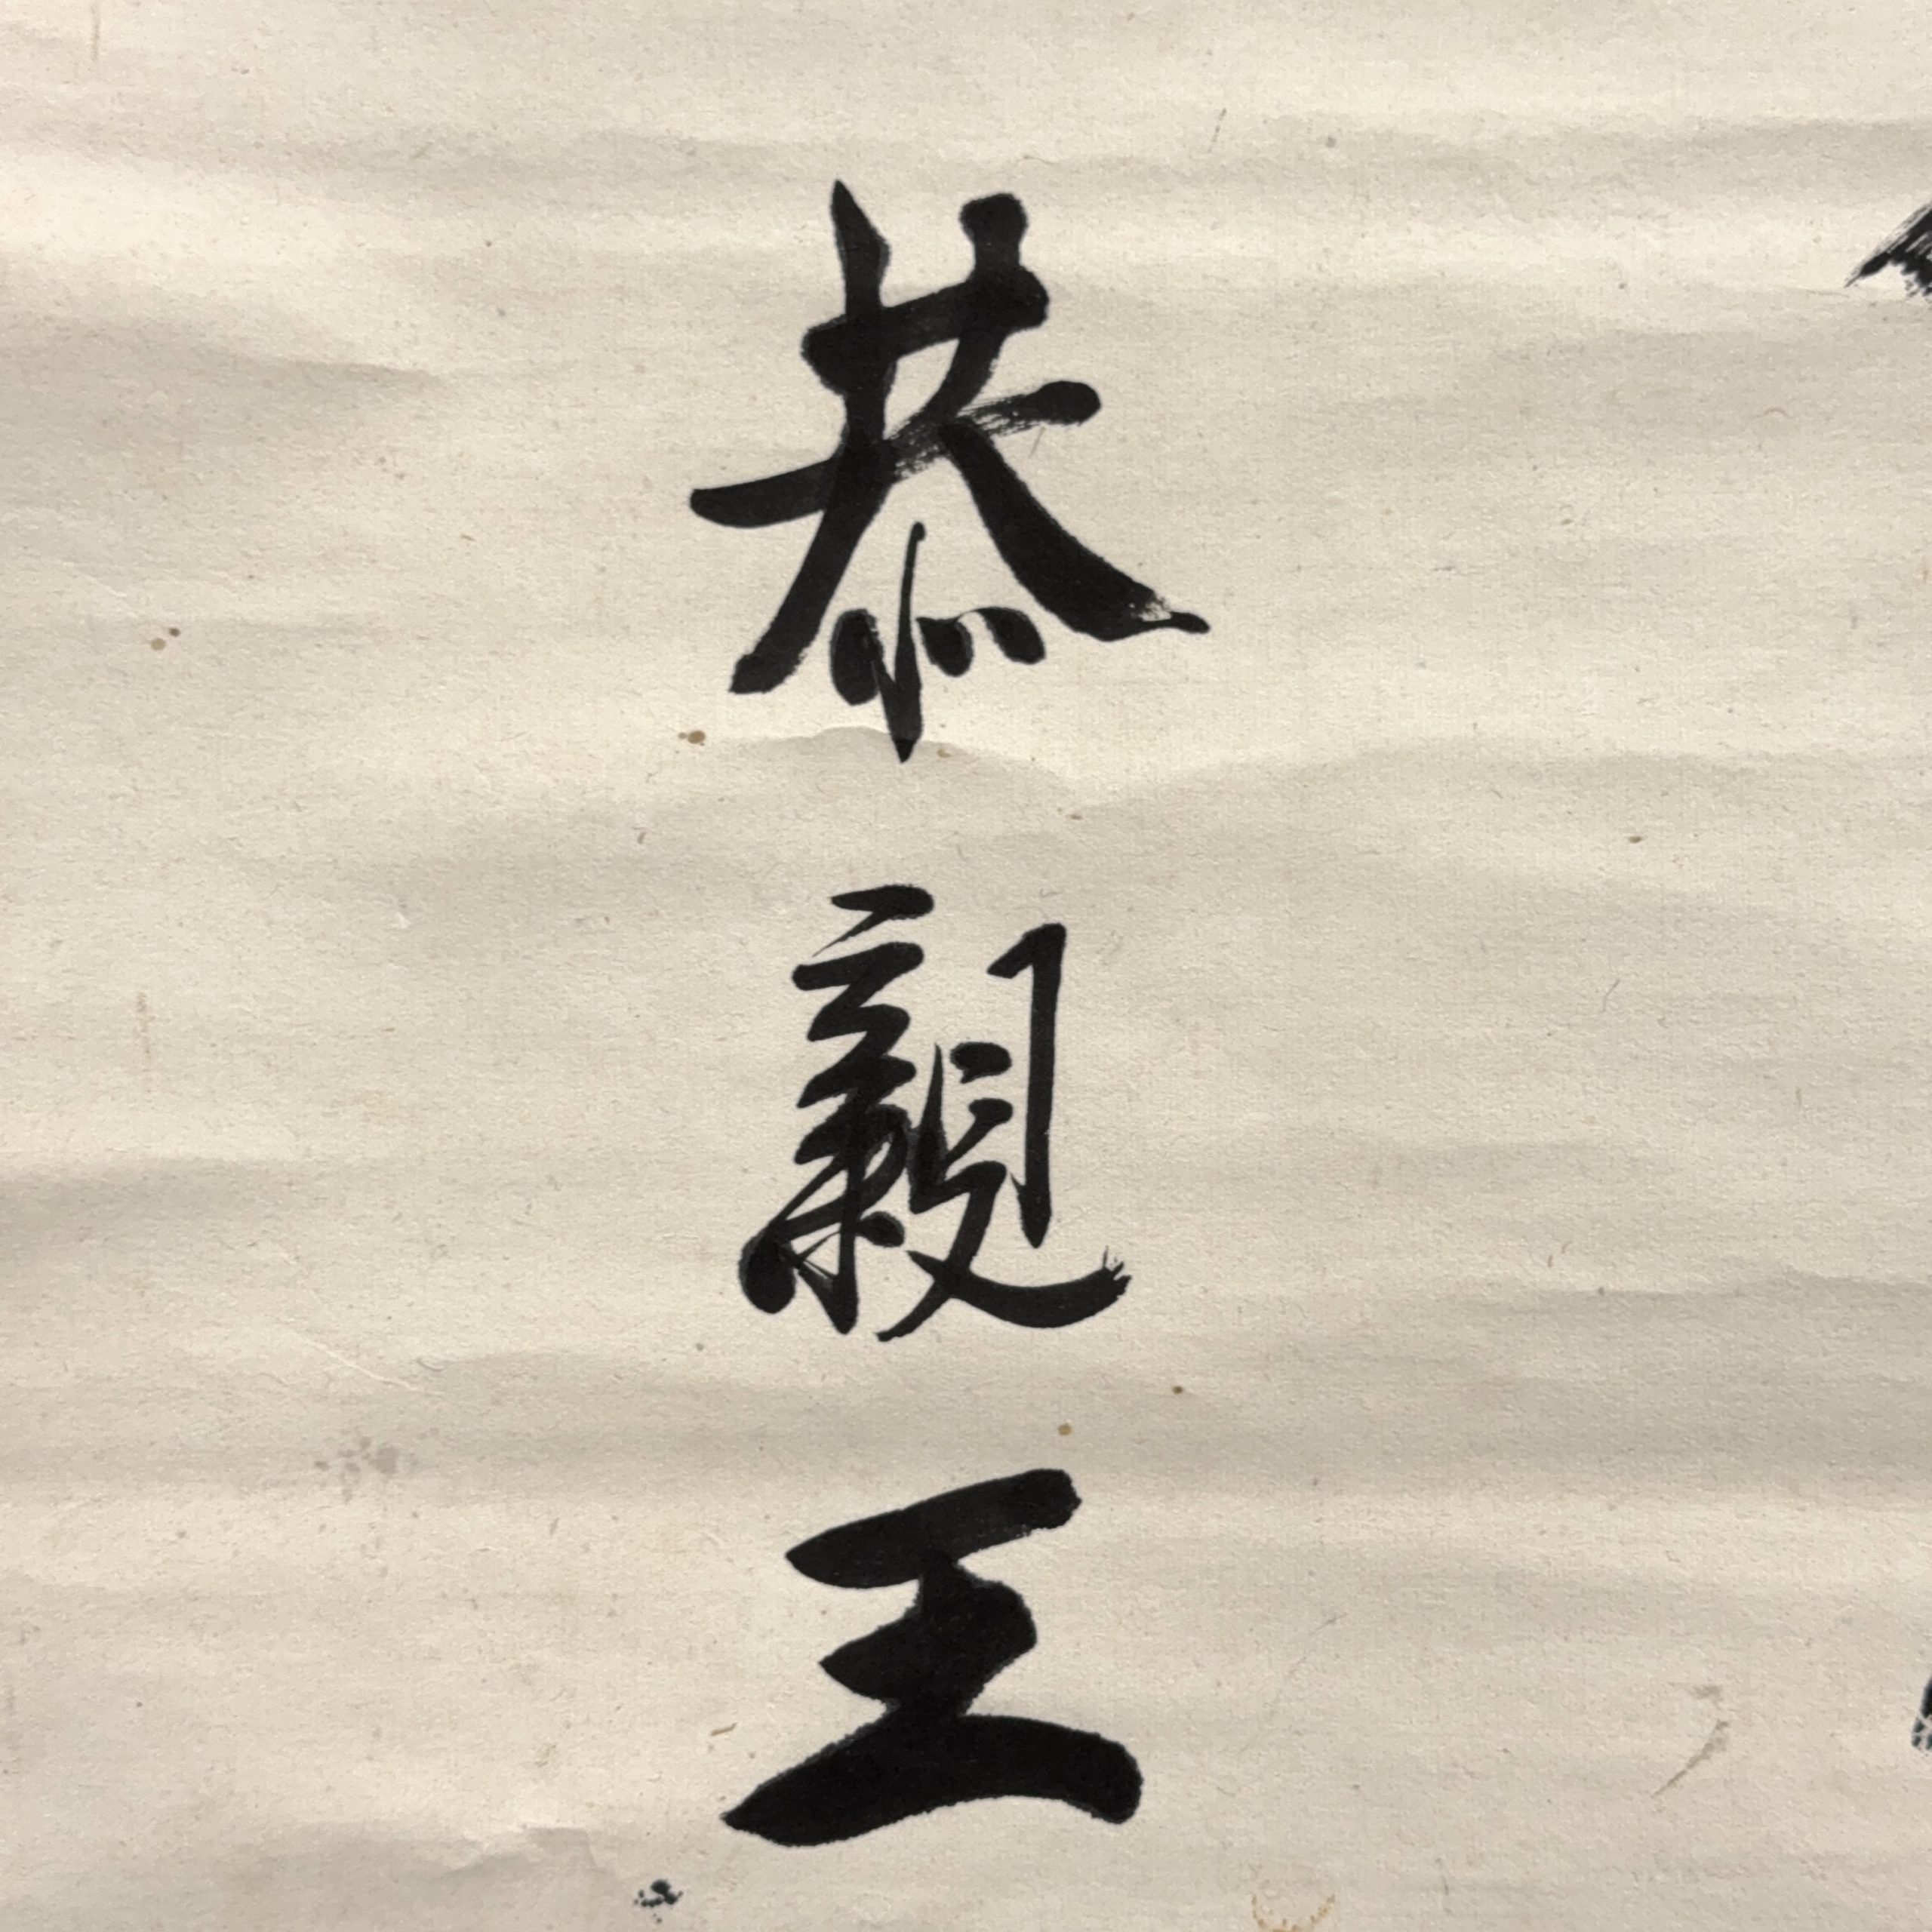 恭親王